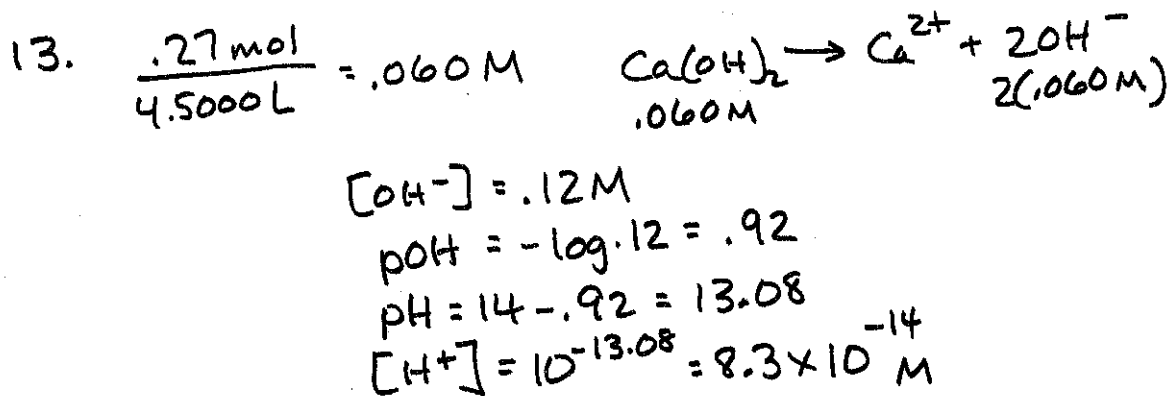 13. .27 mol / 4.5000 L = .060 M Ca(OH)₂ → Ca²⁺ + 2OH⁻
.060 M 2(.060 M)
[OH-] = .12 M
pOH = -log .12 = .92
pH = 14 - .92 = 13.08
[H+] = 10⁻¹³·⁰⁸ = 8.3 × 10⁻¹⁴ M